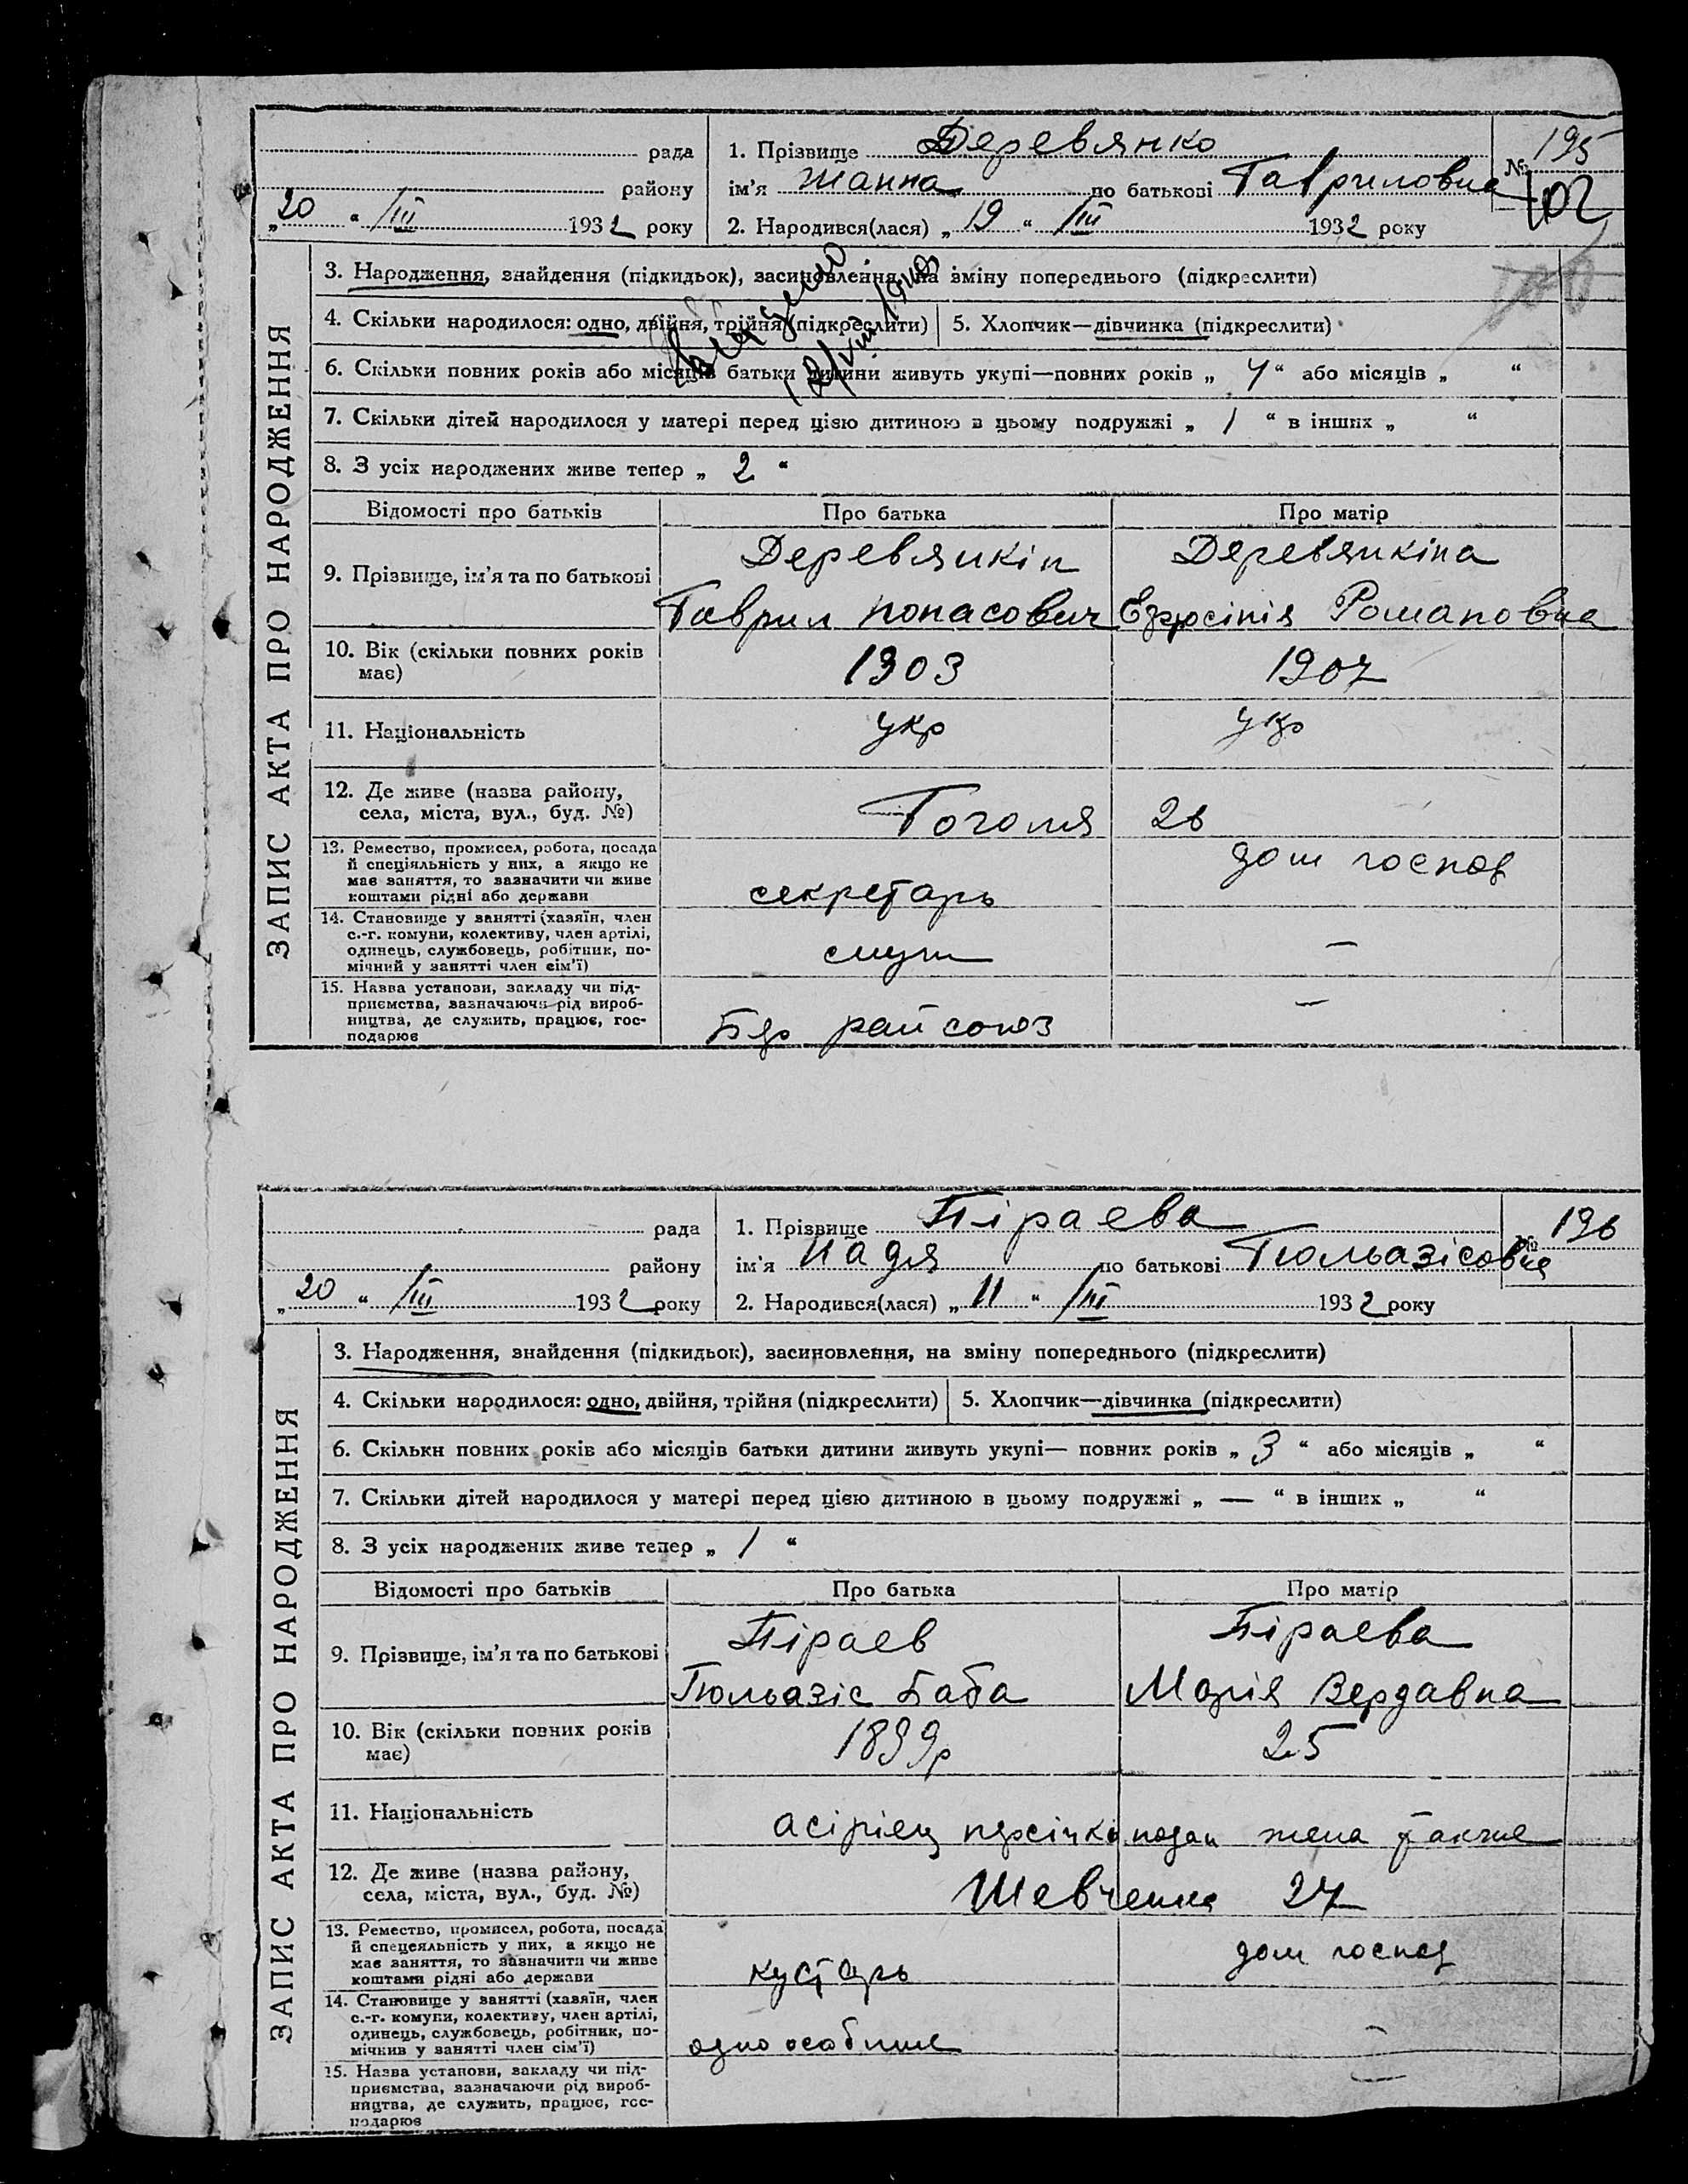 рада
району
„ 20 “ III 1932 року
1. Прізвище Деревянко
ім'я Жанна по батькові Гавриловна
2. Народився(лася) „ 19 “ III 1932 року
№ 195
102
ЗАПИС АКТА ПРО НАРОДЖЕННЯ
3. Народження, знайдення (підкидьок), засиновлення, на зміну попереднього (підкреслити)
4. Скільки народилося: одно, двійня, трійня (підкреслити)
5. Хлопчик—дівчинка (підкреслити)
6. Скільки повних років або місяців батьки дитини живуть укупі—повних років „ 4 “ або місяців „ “
7. Скільки дітей народилося у матері перед цією дитиною в цьому подружжі „ 1 “ в інших „ “
8. З усіх народжених живе тепер „ 2 “
Відомості про батьків Про батька Про матір
9. Прізвище, ім'я та по батькові
Деревянкін
Гаврил Понасович
Деревянкіна
Ефросінія Романовна
10. Вік (скільки повних років
має)
1903 1907
11. Національність укр укр
12. Де живе (назва району,
села, міста, вул., буд. №)
Гоголя 26
13. Ремество, промисел, робота, посада
й спеціяльність у них, а якщо не
має заняття, то зазначити чи живе
коштами рідні або держави
секретарь
дом господ
14. Становище у занятті (хазяїн, член
с.-г. комуни, колективу, член артілі,
одинець, службовець, робітник, по-
мічний у занятті член сім'ї)
служ —
15. Назва установи, закладу чи під-
приємства, зазначаючи рід вироб-
ництва, де служить, працює, гос-
подарює
Бер райсоюз —
рада
району
„ 20 “ III 1932 року
1. Прізвище Піраева
ім'я Надя по батькові Гюльазісовна
2. Народився(лася) „ 11 “ III 1932 року
№ 196
ЗАПИС АКТА ПРО НАРОДЖЕННЯ
3. Народження, знайдення (підкидьок), засиновлення, на зміну попереднього (підкреслити)
4. Скільки народилося: одно, двійня, трійня (підкреслити)
5. Хлопчик—дівчинка (підкреслити)
6. Скільки повних років або місяців батьки дитини живуть укупі— повних років „ 3 “ або місяців „ “
7. Скільки дітей народилося у матері перед цією дитиною в цьому подружжі „ — “ в інших „ “
8. З усіх народжених живе тепер „ 1 “
Відомості про батьків Про батька Про матір
9. Прізвище, ім'я та по батькові
Піраев
Гюльазіс Баба
Піраева
Марія Вердавна
10. Вік (скільки повних років
має)
1899р 25
11. Національність
асіріец персічко подан жена также
12. Де живе (назва району,
села, міста, вул., буд. №)
Шевченка 27
13. Ремество, промисел, робота, посада
й спецеяльність у них, а якщо не
має заняття, то зазначити чи живе
коштами рідні або держави
кустарь
дом господ
14. Становище у занятті (хазяїн, член
с.-г. комуни, колективу, член артілі,
одинець, службовець, робітник, по-
мічник у занятті член сім'ї)
одноособник —
15. Назва установи, закладу чи під-
приємства, зазначаючи рід вироб-
ництва, де служить, працює, гос-
подарює
—